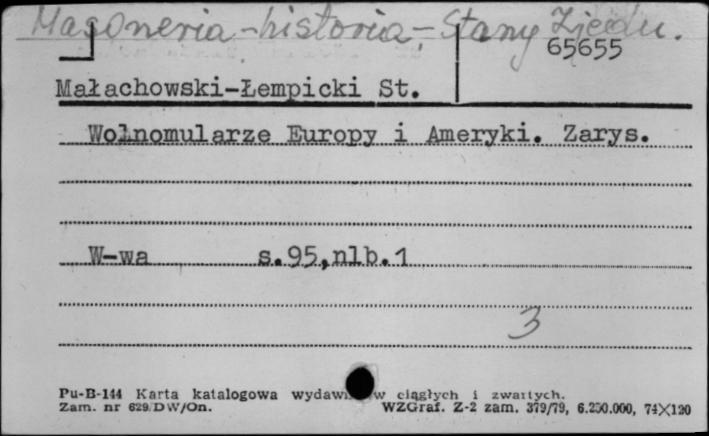 Masoneria - historia - Stany Zjedn.
65655
Małachowski-Łempicki St.
Wolnomularze Europy i Ameryki. Zarys.
W-wa s.95,nlb.1
3
Pu-B-144 Karta katalogowa ciągłych i zwartych.
Zam. nr 629/DW/On. WZGraf. Z-2 zam. 379/79, 6.250.000, 74X120